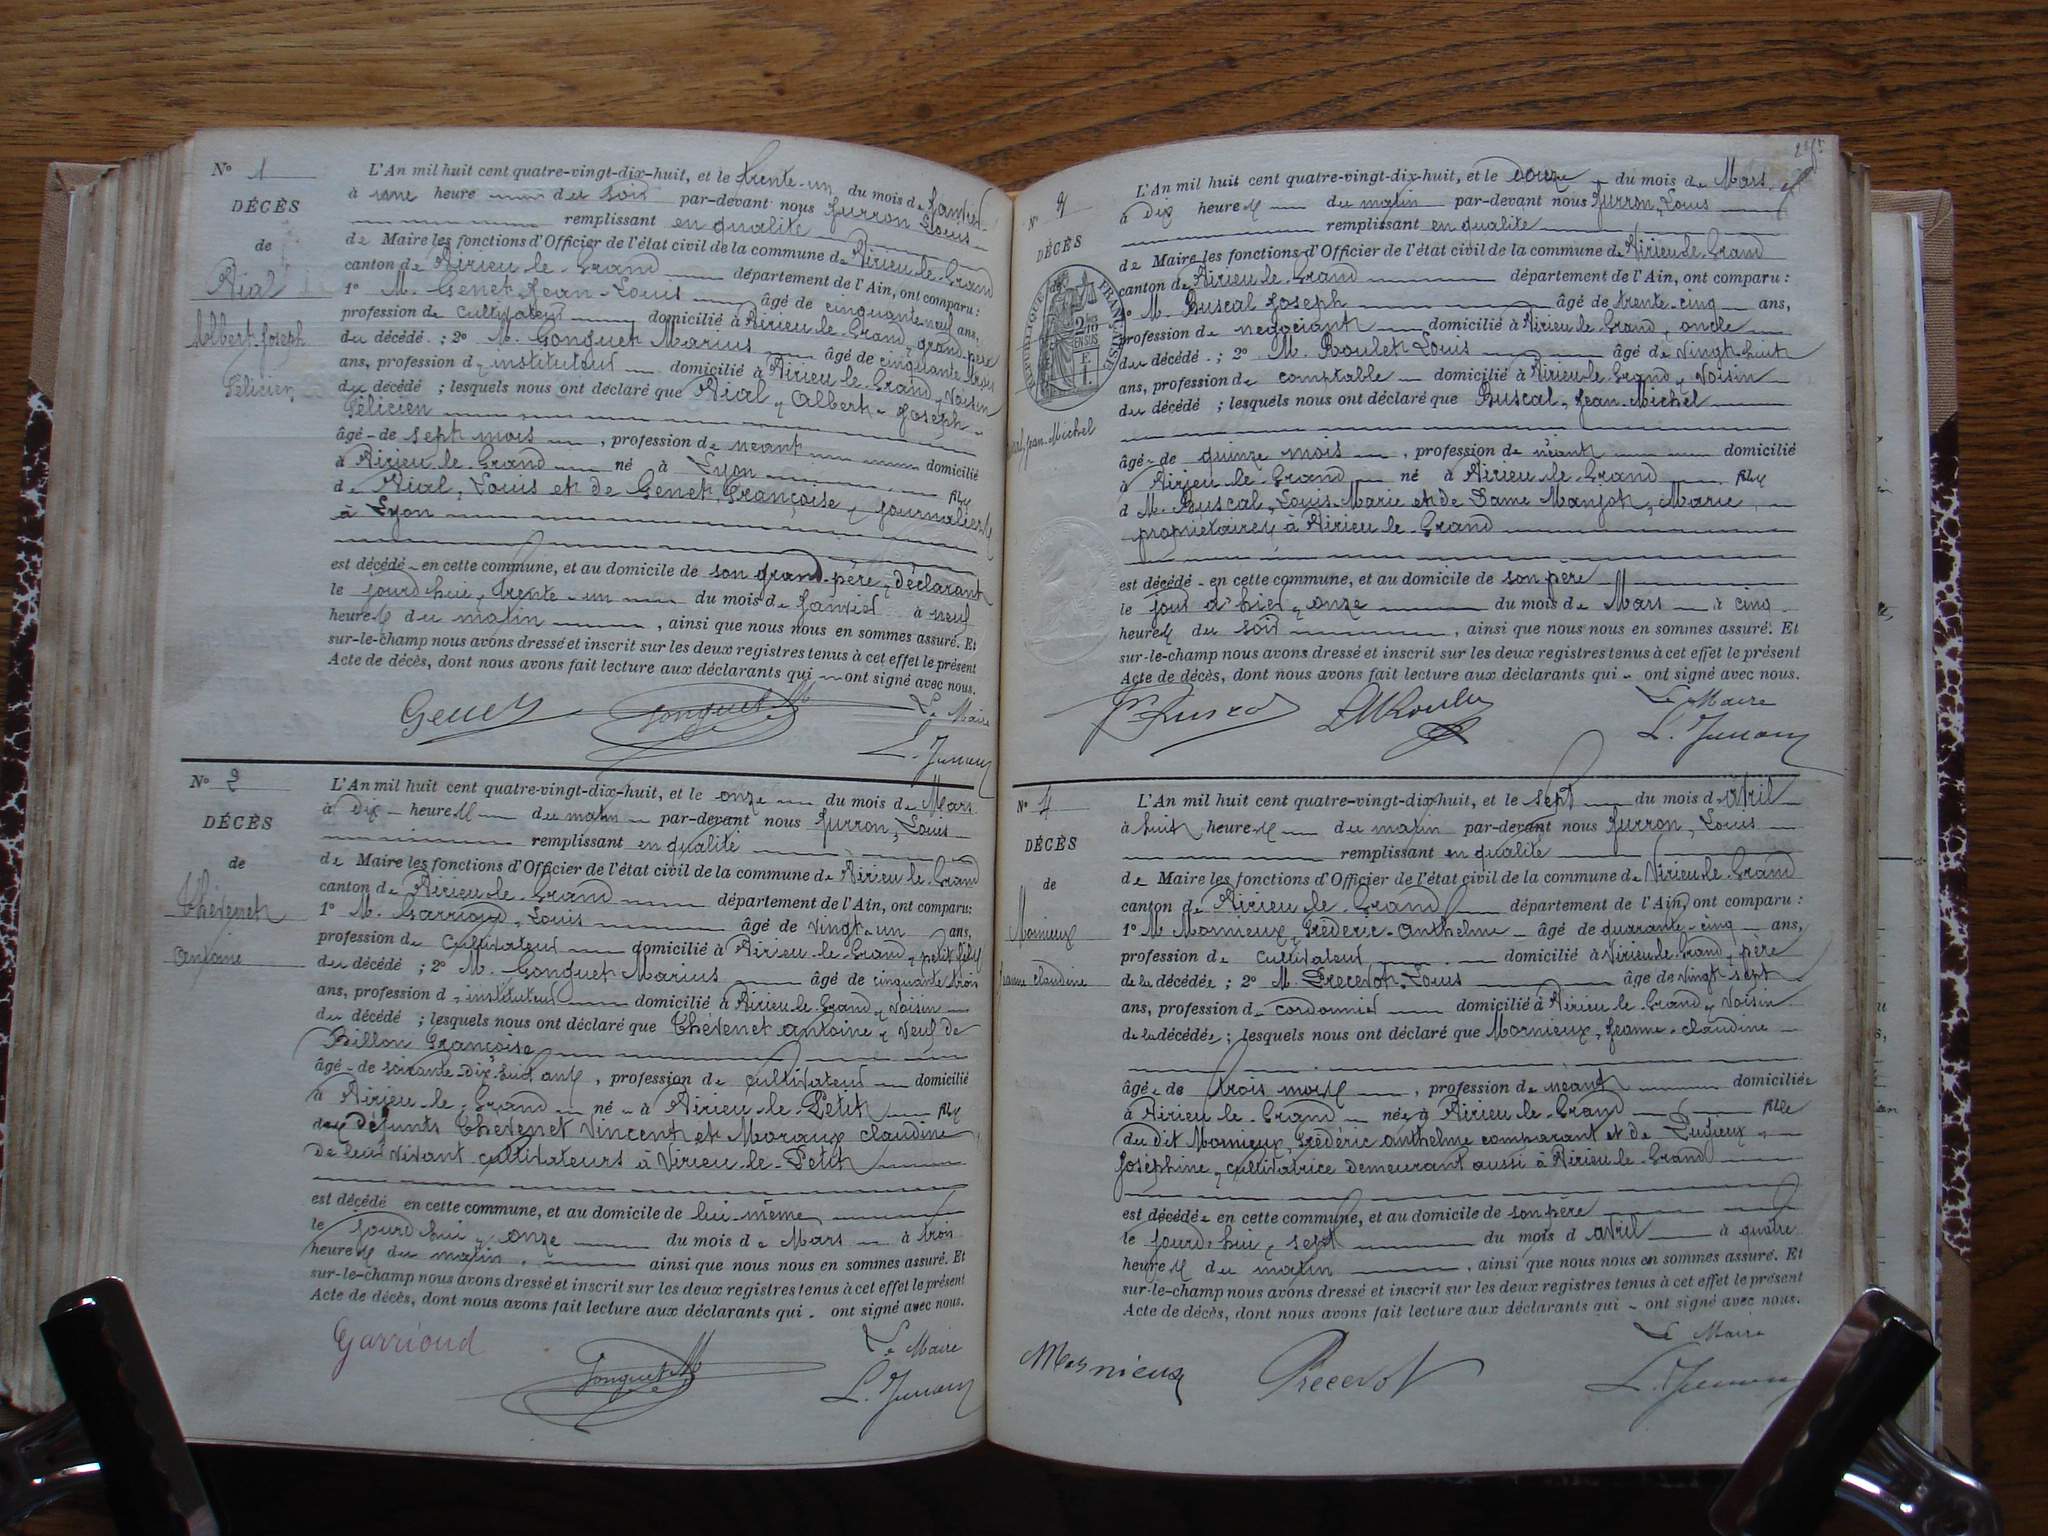 N° 1
DÉCÈS
de
Vial
Albert Joseph
Félicien
L'An mil huit cent quatre-vingt-dix-huit, et le trente-un du mois de Janvier
à une heure du soir par-devant nous Jurron Louis
remplissant en qualité
de Maire les fonctions d'Officier de l'état civil de la commune de Virieu-le-Grand
canton de Virieu-le-Grand département de l'Ain, ont comparu :
1° M. Genet Jean-Louis âgé de cinquante-neuf ans,
profession de cultivateur domicilié à Virieu-le-Grand, grand-père
du décédé ; 2° M. Gonguet Marius âgé de cinquante-trois
ans, profession d'instituteur domicilié à Virieu-le-Grand, voisin
du décédé ; lesquels nous ont déclaré que Vial, Albert-Joseph-
Félicien
âgé de sept mois, profession de néant domicilié
à Virieu-le-Grand né à Lyon fils
de Vial, Louis et de Genet Françoise, journaliers
à Lyon
est décédé en cette commune, et au domicile de son grand-père, déclarant
le jourd'hui, trente-un du mois de Janvier à neuf
heures du matin, ainsi que nous nous en sommes assuré. Et
sur-le-champ nous avons dressé et inscrit sur les deux registres tenus à cet effet le présent
Acte de décès, dont nous avons fait lecture aux déclarants qui ont signé avec nous.
Genet Gonguet M Le Maire
L. Jurron
N° 2
DÉCÈS
de
Thévenet
Antoine
L'An mil huit cent quatre-vingt-dix-huit, et le onze du mois de Mars
à dix heures du matin par-devant nous Jurron, Louis
remplissant en qualité
de Maire les fonctions d'Officier de l'état civil de la commune de Virieu-le-Grand
canton de Virieu-le-Grand département de l'Ain, ont comparu :
1° M. Garrioud, Louis âgé de vingt-un ans,
profession de cultivateur domicilié à Virieu-le-Grand, petit-fils
du décédé ; 2° M. Gonguet Marius âgé de cinquante trois
ans, profession d'instituteur domicilié à Virieu-le-Grand, voisin
du décédé ; lesquels nous ont déclaré que Thévenet Antoine, veuf de
Billon Françoise
âgé de soixante-dix-huit ans, profession de cultivateur domicilié
à Virieu-le-Grand né à Virieu-le-Petit fils
des défunts Thévenet Vincent et Moraux Claudine
de leur vivant cultivateurs à Virieu-le-Petit
est décédé en cette commune, et au domicile de lui-même
le jourd'hui, onze du mois de Mars à trois
heures du matin, ainsi que nous nous en sommes assuré. Et
sur-le-champ nous avons dressé et inscrit sur les deux registres tenus à cet effet le présent
Acte de décès, dont nous avons fait lecture aux déclarants qui ont signé avec nous.
Garrioud Gonguet M Le Maire
L. Jurron
N° 3
DÉCÈS
RÉPUBLIQUE FRANÇAISE
Jean-Michel
L'An mil huit cent quatre-vingt-dix-huit, et le douze du mois de Mars
à dix heures du matin par-devant nous Jurron, Louis
remplissant en qualité
de Maire les fonctions d'Officier de l'état civil de la commune de Virieu-le-Grand
canton de Virieu-le-Grand département de l'Ain, ont comparu :
1° M. Buscal Joseph âgé de trente-cinq ans,
profession de négociant domicilié à Virieu-le-Grand, oncle
du décédé ; 2° M. Roulet Louis âgé de vingt-huit
ans, profession de comptable domicilié à Virieu-le-Grand, voisin
du décédé ; lesquels nous ont déclaré que Buscal, Jean-Michel
âgé de quinze mois, profession de néant domicilié
à Virieu-le-Grand né à Virieu-le-Grand fils
d M. Buscal, Louis-Marie et de Dame Manjot, Marie,
propriétaires à Virieu-le-Grand
est décédé en cette commune, et au domicile de son père
le jour d'hier, onze du mois de Mars à cinq
heures du soir, ainsi que nous nous en sommes assuré. Et
sur-le-champ nous avons dressé et inscrit sur les deux registres tenus à cet effet le présent
Acte de décès, dont nous avons fait lecture aux déclarants qui ont signé avec nous.
Le Maire
L. Jurron
N° 4
DÉCÈS
de
Mornieux
Jeanne Claudine
L'An mil huit cent quatre-vingt-dix-huit, et le sept du mois d'Avril
à huit heures du matin par-devant nous Jurron, Louis
remplissant en qualité
de Maire les fonctions d'Officier de l'état civil de la commune de Virieu-le-Grand
canton de Virieu-le-Grand département de l'Ain, ont comparu :
1° M Mornieux, Fréderic-Anthelme âgé de quarante-cinq ans,
profession de cultivateur domicilié à Virieu-le-Grand, père
de la décédée ; 2° M. Precevot, Louis âgé de vingt-sept
ans, profession de cordonnier domicilié à Virieu-le-Grand, voisin
de la décédée ; lesquels nous ont déclaré que Mornieux, Jeanne-Claudine
âgée de trois mois, profession de néant domiciliée
à Virieu-le-Grand née à Virieu-le-Grand fille
du dit Mornieux, Frédéric Anthelme comparant et de
Joséphine, cultivatrice demeurant aussi à Virieu-le-Grand
est décédée en cette commune, et au domicile de son père
le jourd'hui, sept du mois d avril à quatre
heures du matin, ainsi que nous nous en sommes assuré. Et
sur-le-champ nous avons dressé et inscrit sur les deux registres tenus à cet effet le présent
Acte de décès, dont nous avons fait lecture aux déclarants qui ont signé avec nous.
Mornieux Precevot Le Maire
L. Jurron